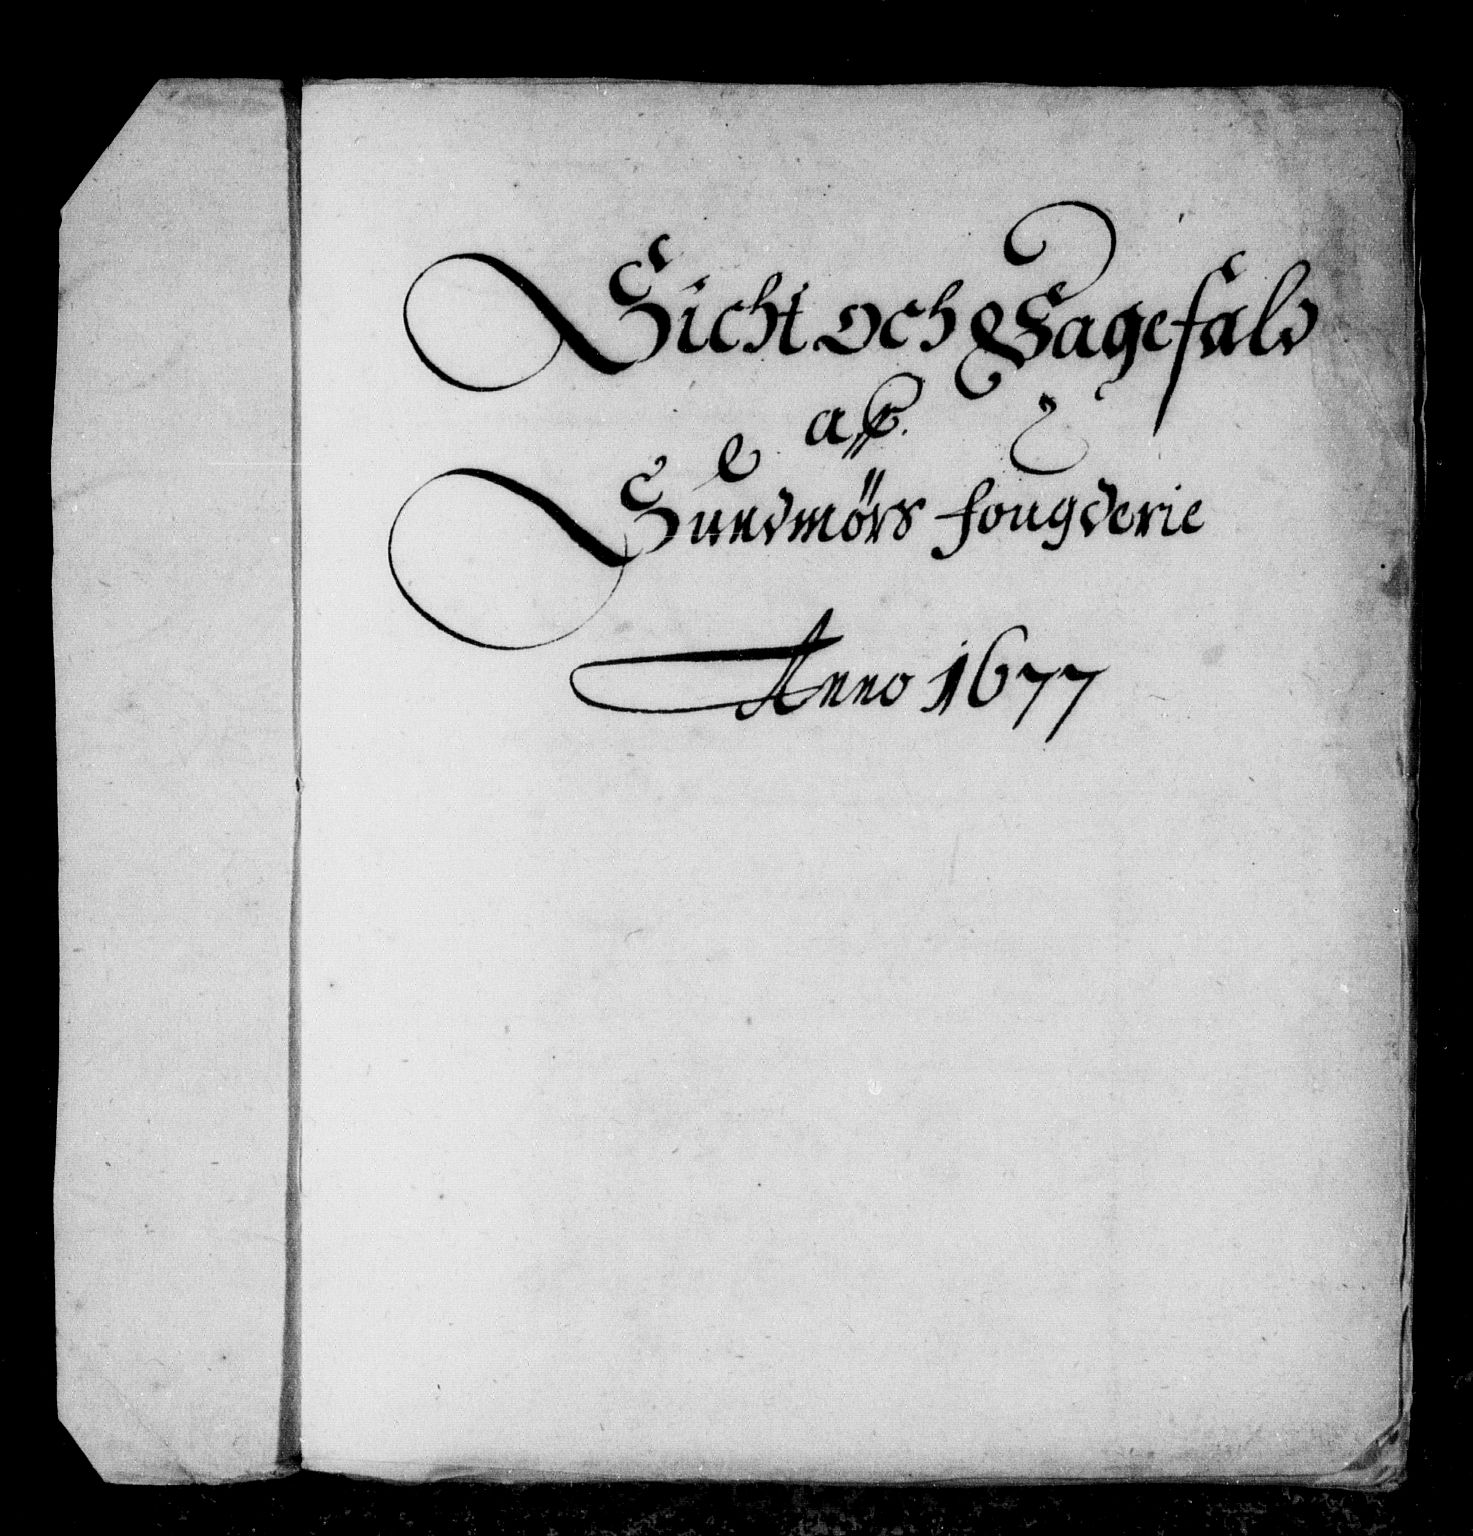 Sicht och Sagefald
aff
Sundmörs fougderie
Anno 1677